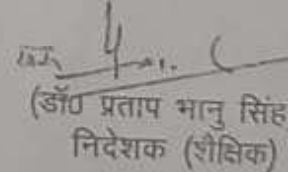 (डॉ0 प्रताप भानु सिंह
निदेशक (शैक्षिक)